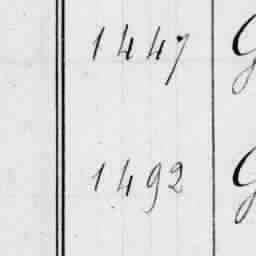 1447 G
1492 G